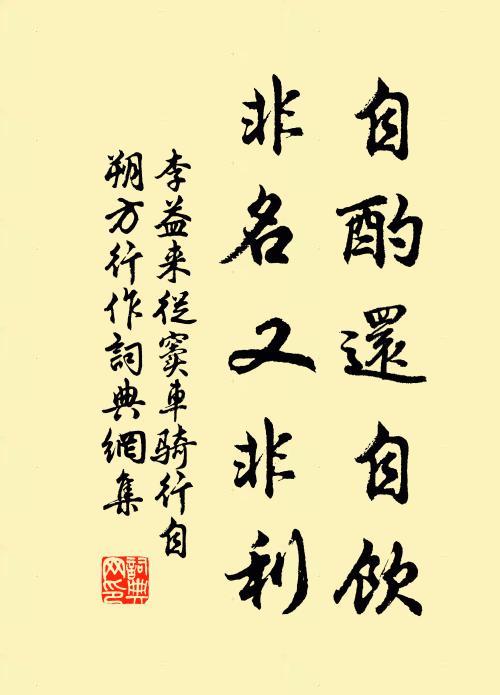 自酌還自飲
非名又非利
李益来従窦車騎行自
朔方行作詞典網集
詞典
网印